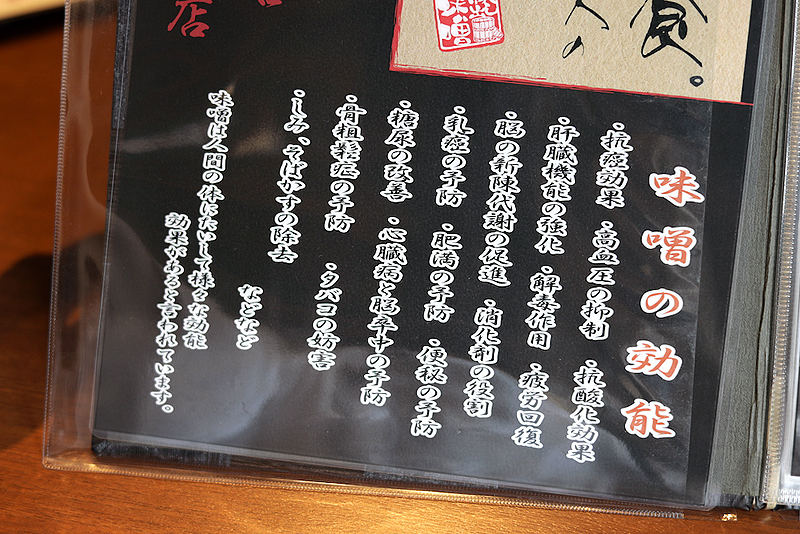 食。
人の
味噌
店
味噌の効能
・抗癌効果 ・高血圧の抑制 ・抗酸化効果
・肝臓機能の強化 ・解毒作用 ・疲労回復
・脳の新陳代謝の促進 ・消化剤の役割
・乳癌の予防 ・肥満の予防 ・便秘の予防
・糖尿の改善 ・心臓病と脳卒中の予防
・骨粗鬆症の予防 ・タバコの妨害
・しみ、そばかすの除去
などなど
味噌は人間の体にたいして様々な効能
効果があると言われています。